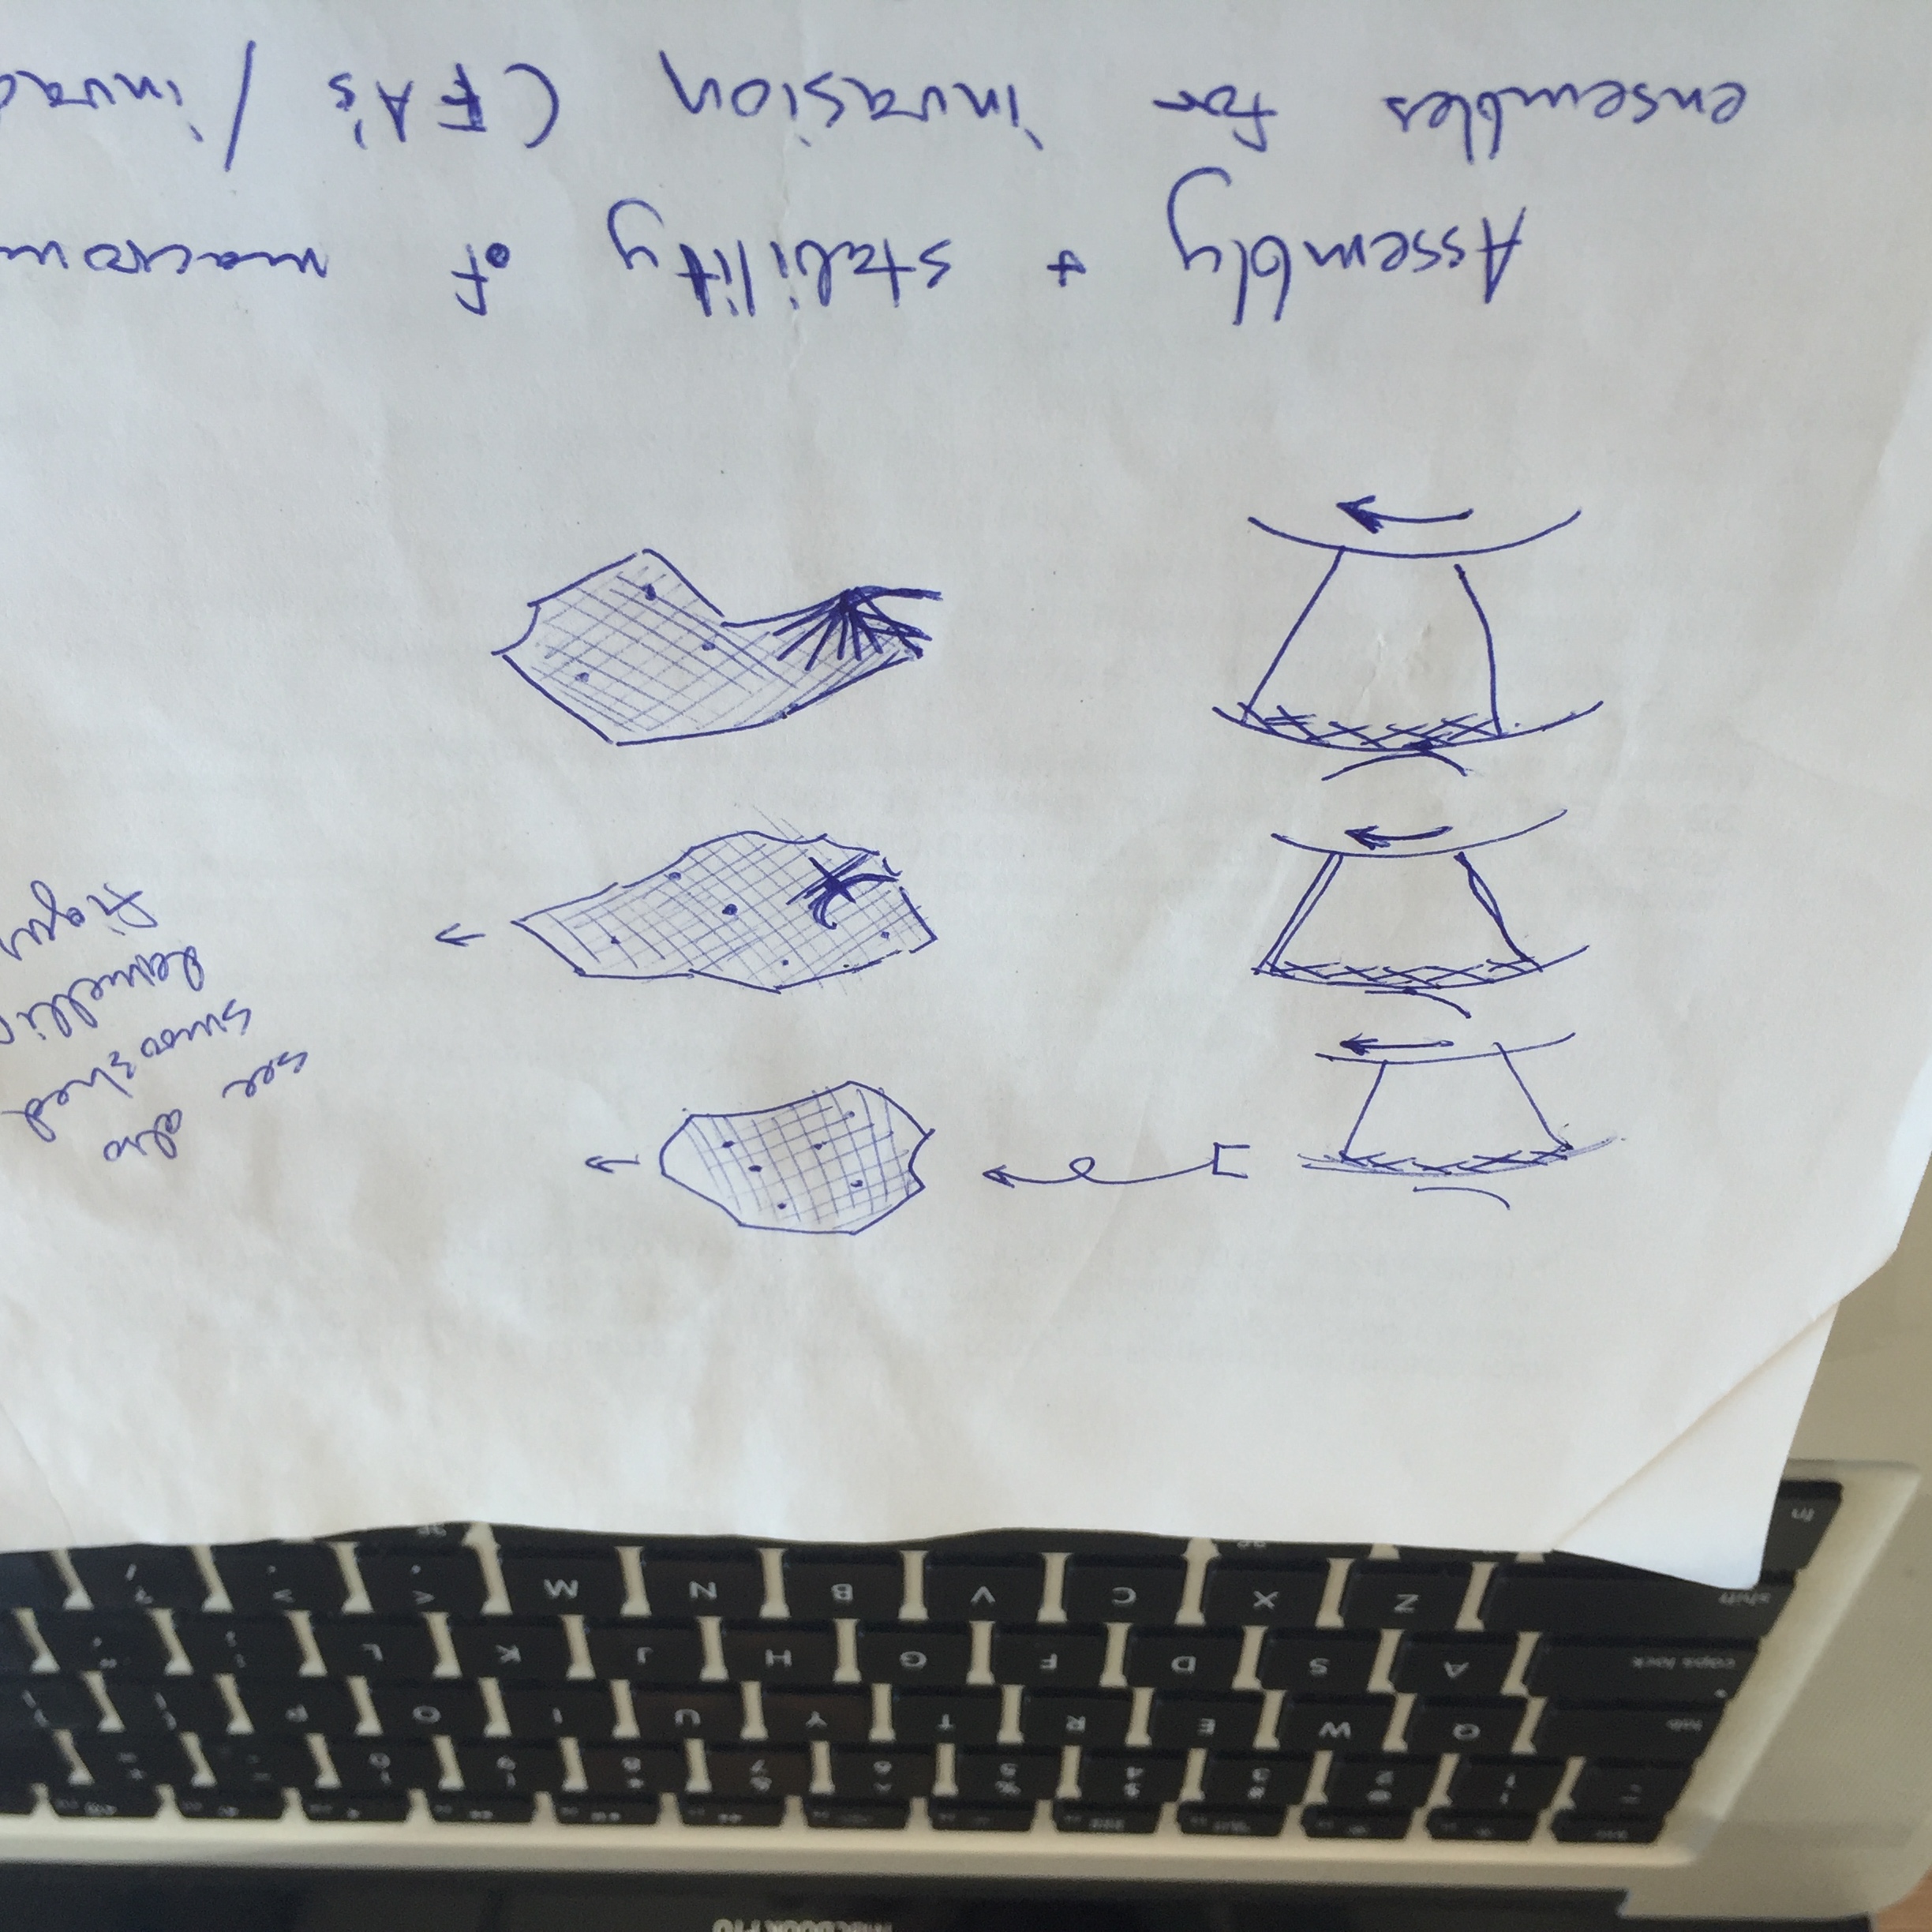 MacBook Pro
! 1 @ 2 # 3 $ 4 % 5 ^ 6 & 7 * 8 ( 9 ) 0
tab Q W E R T Y U I O P
caps lock A S D F G H J K L
shift Z X C V B N M < , > . ? /
fn
see also
smooshed
figur
Assembly + stability of macrom
ensembles for invasion (FA's / invad